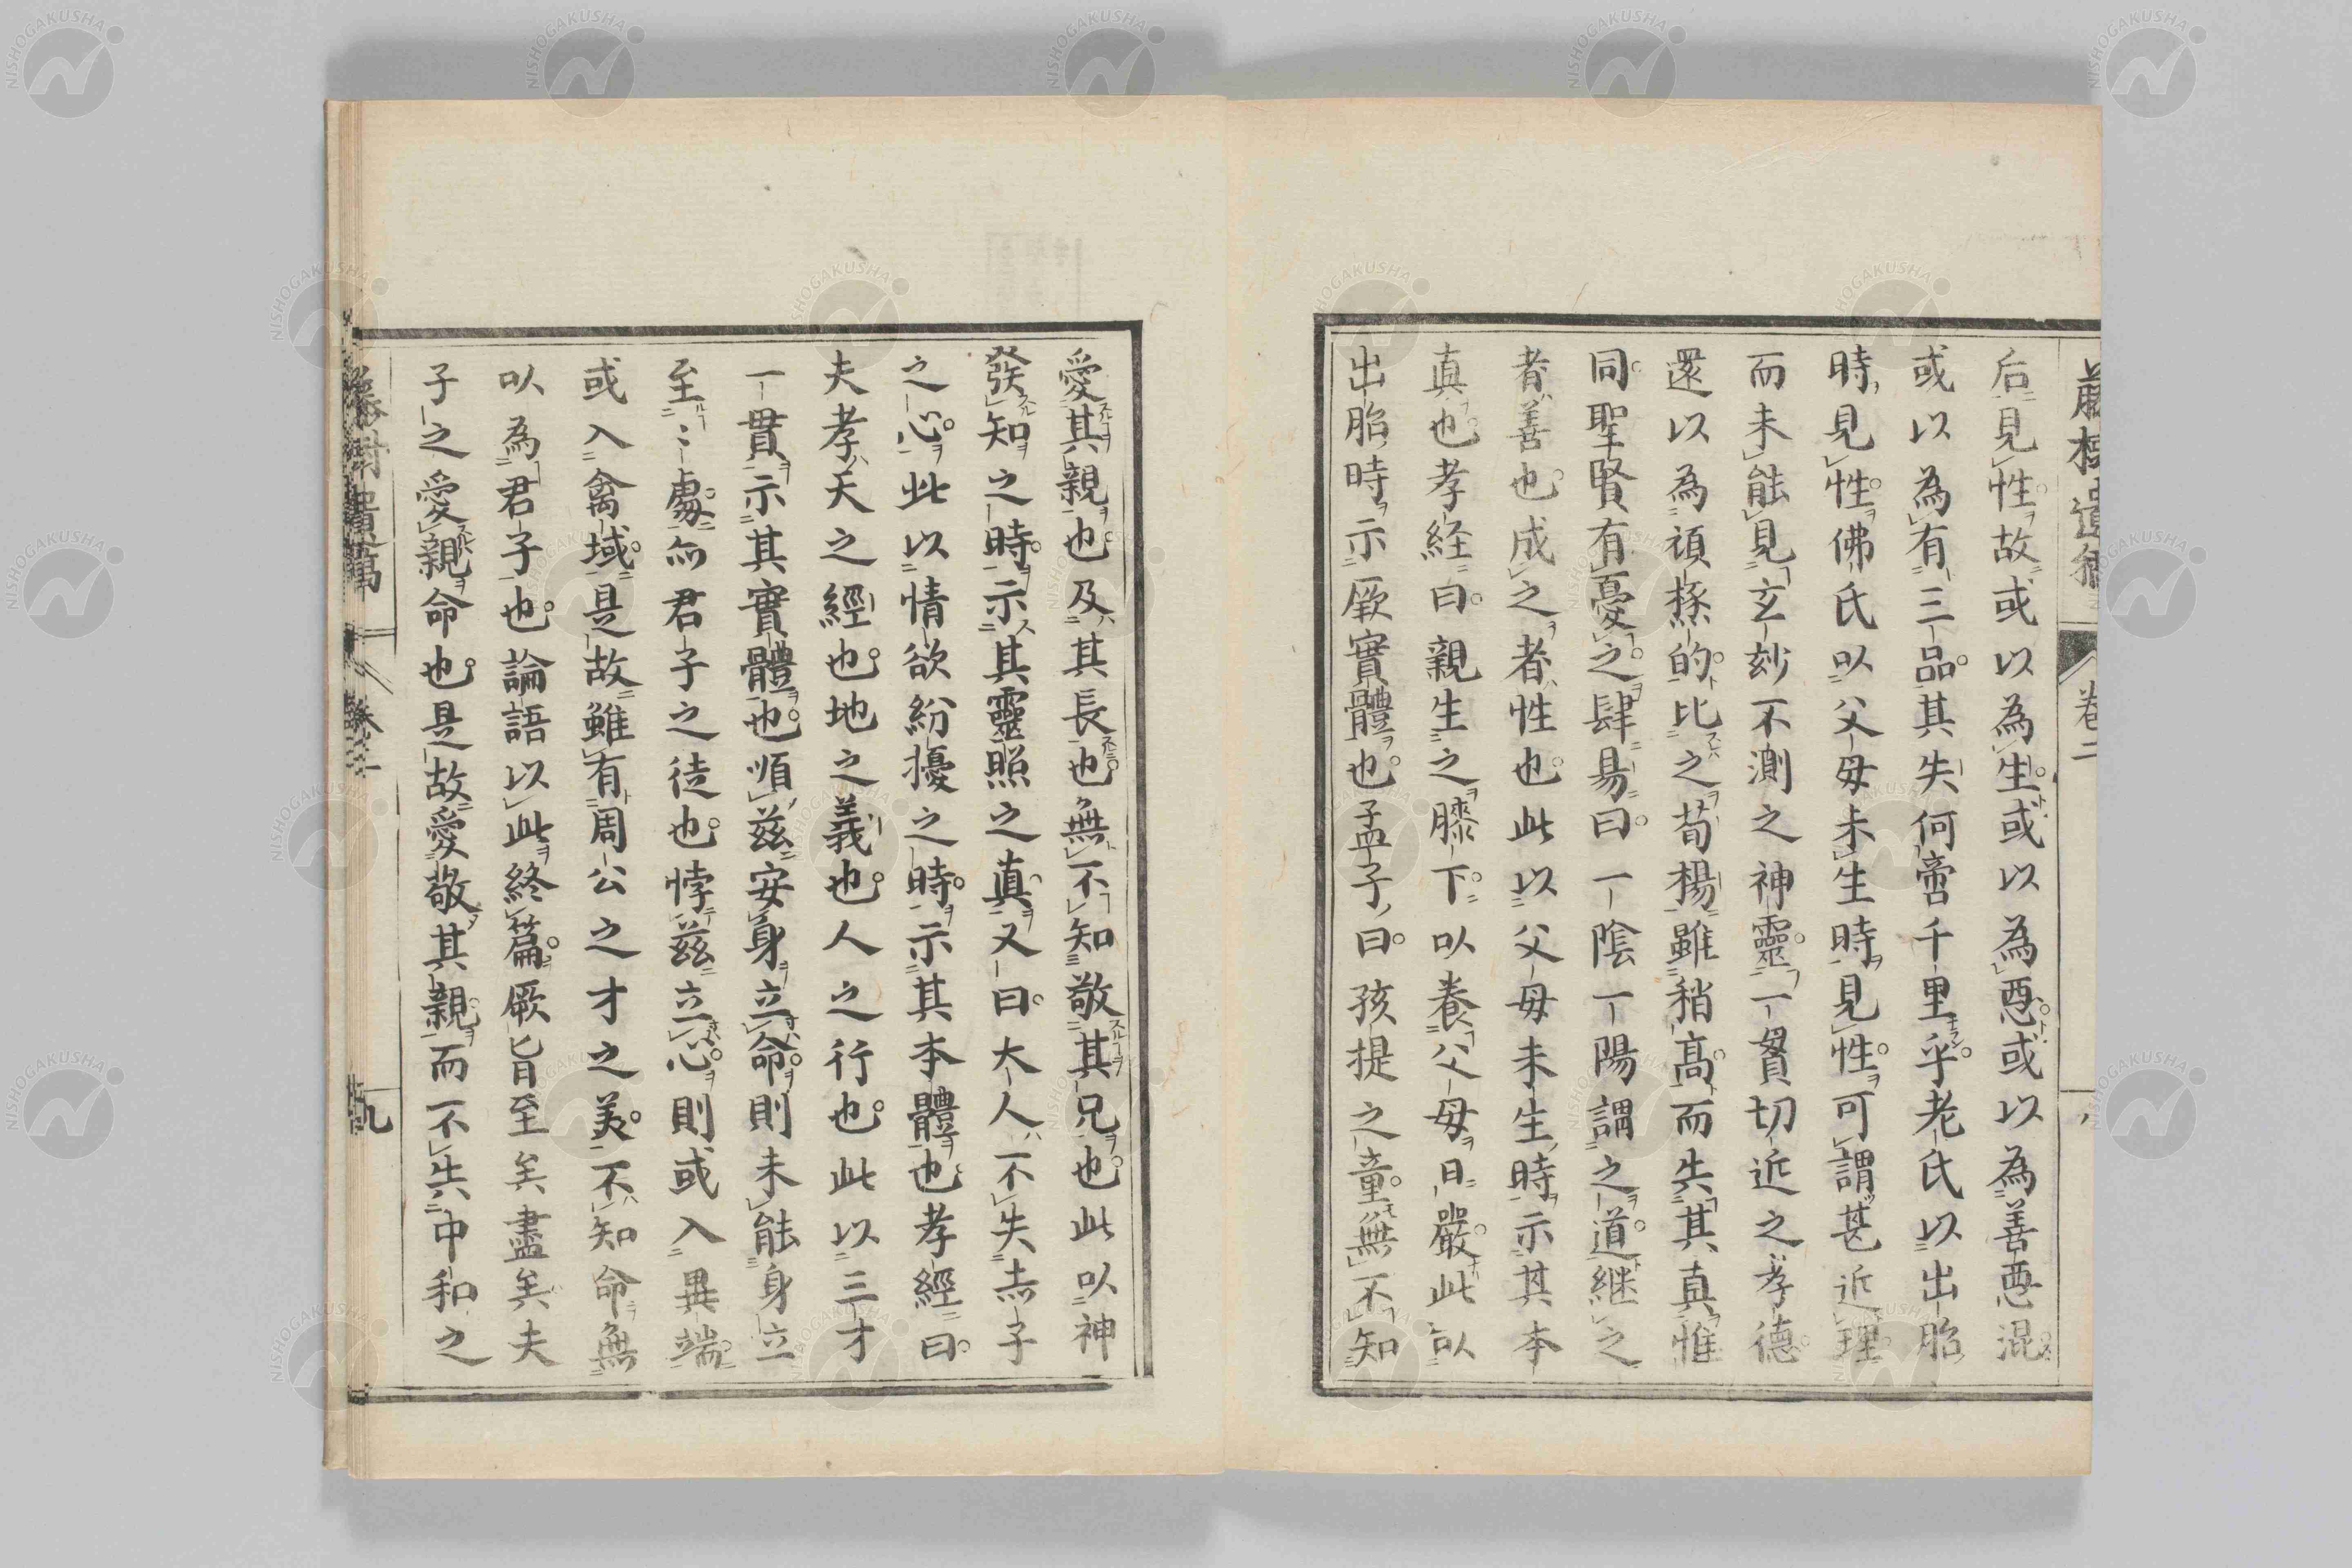 藤樹遺稿 卷二 八
后見性故或以為生或以為惡或以為善惡混
或以為有三品其失何啻千里乎老氏以出胎
時見性佛氏以父母未生時見性可謂甚近理
而未能見玄玅不測之神靈一貫切近之孝德
還以為頑𣟎的比之荀楊雖稍高而失其真惟
同聖賢有憂之肆易曰一陰一陽謂之道継之
者善也成之者性也此以父母未生時示其本
真也孝経曰親生之膝下以養父母日嚴此以
出胎時示厥實體也孟子曰孩提之童無不知
愛其親也及其長也無不知敬其兄也此以神
發知之時示其靈照之真又曰大人不失赤子
之心此以情欲紛擾之時示其本體也孝經曰
夫孝天之經也地之義也人之行也此以三才
一貫示其實體也順茲安身立命則未能身立
至〻處而君子之徒也悖茲立心則或入異端
或入禽域是故雖有周公之才之美不知命無
以為君子也論語以此終篇厥旨至矣盡矣夫
子之愛親命也是故愛敬其親而不失中和之
藤樹遺稿 卷二 九